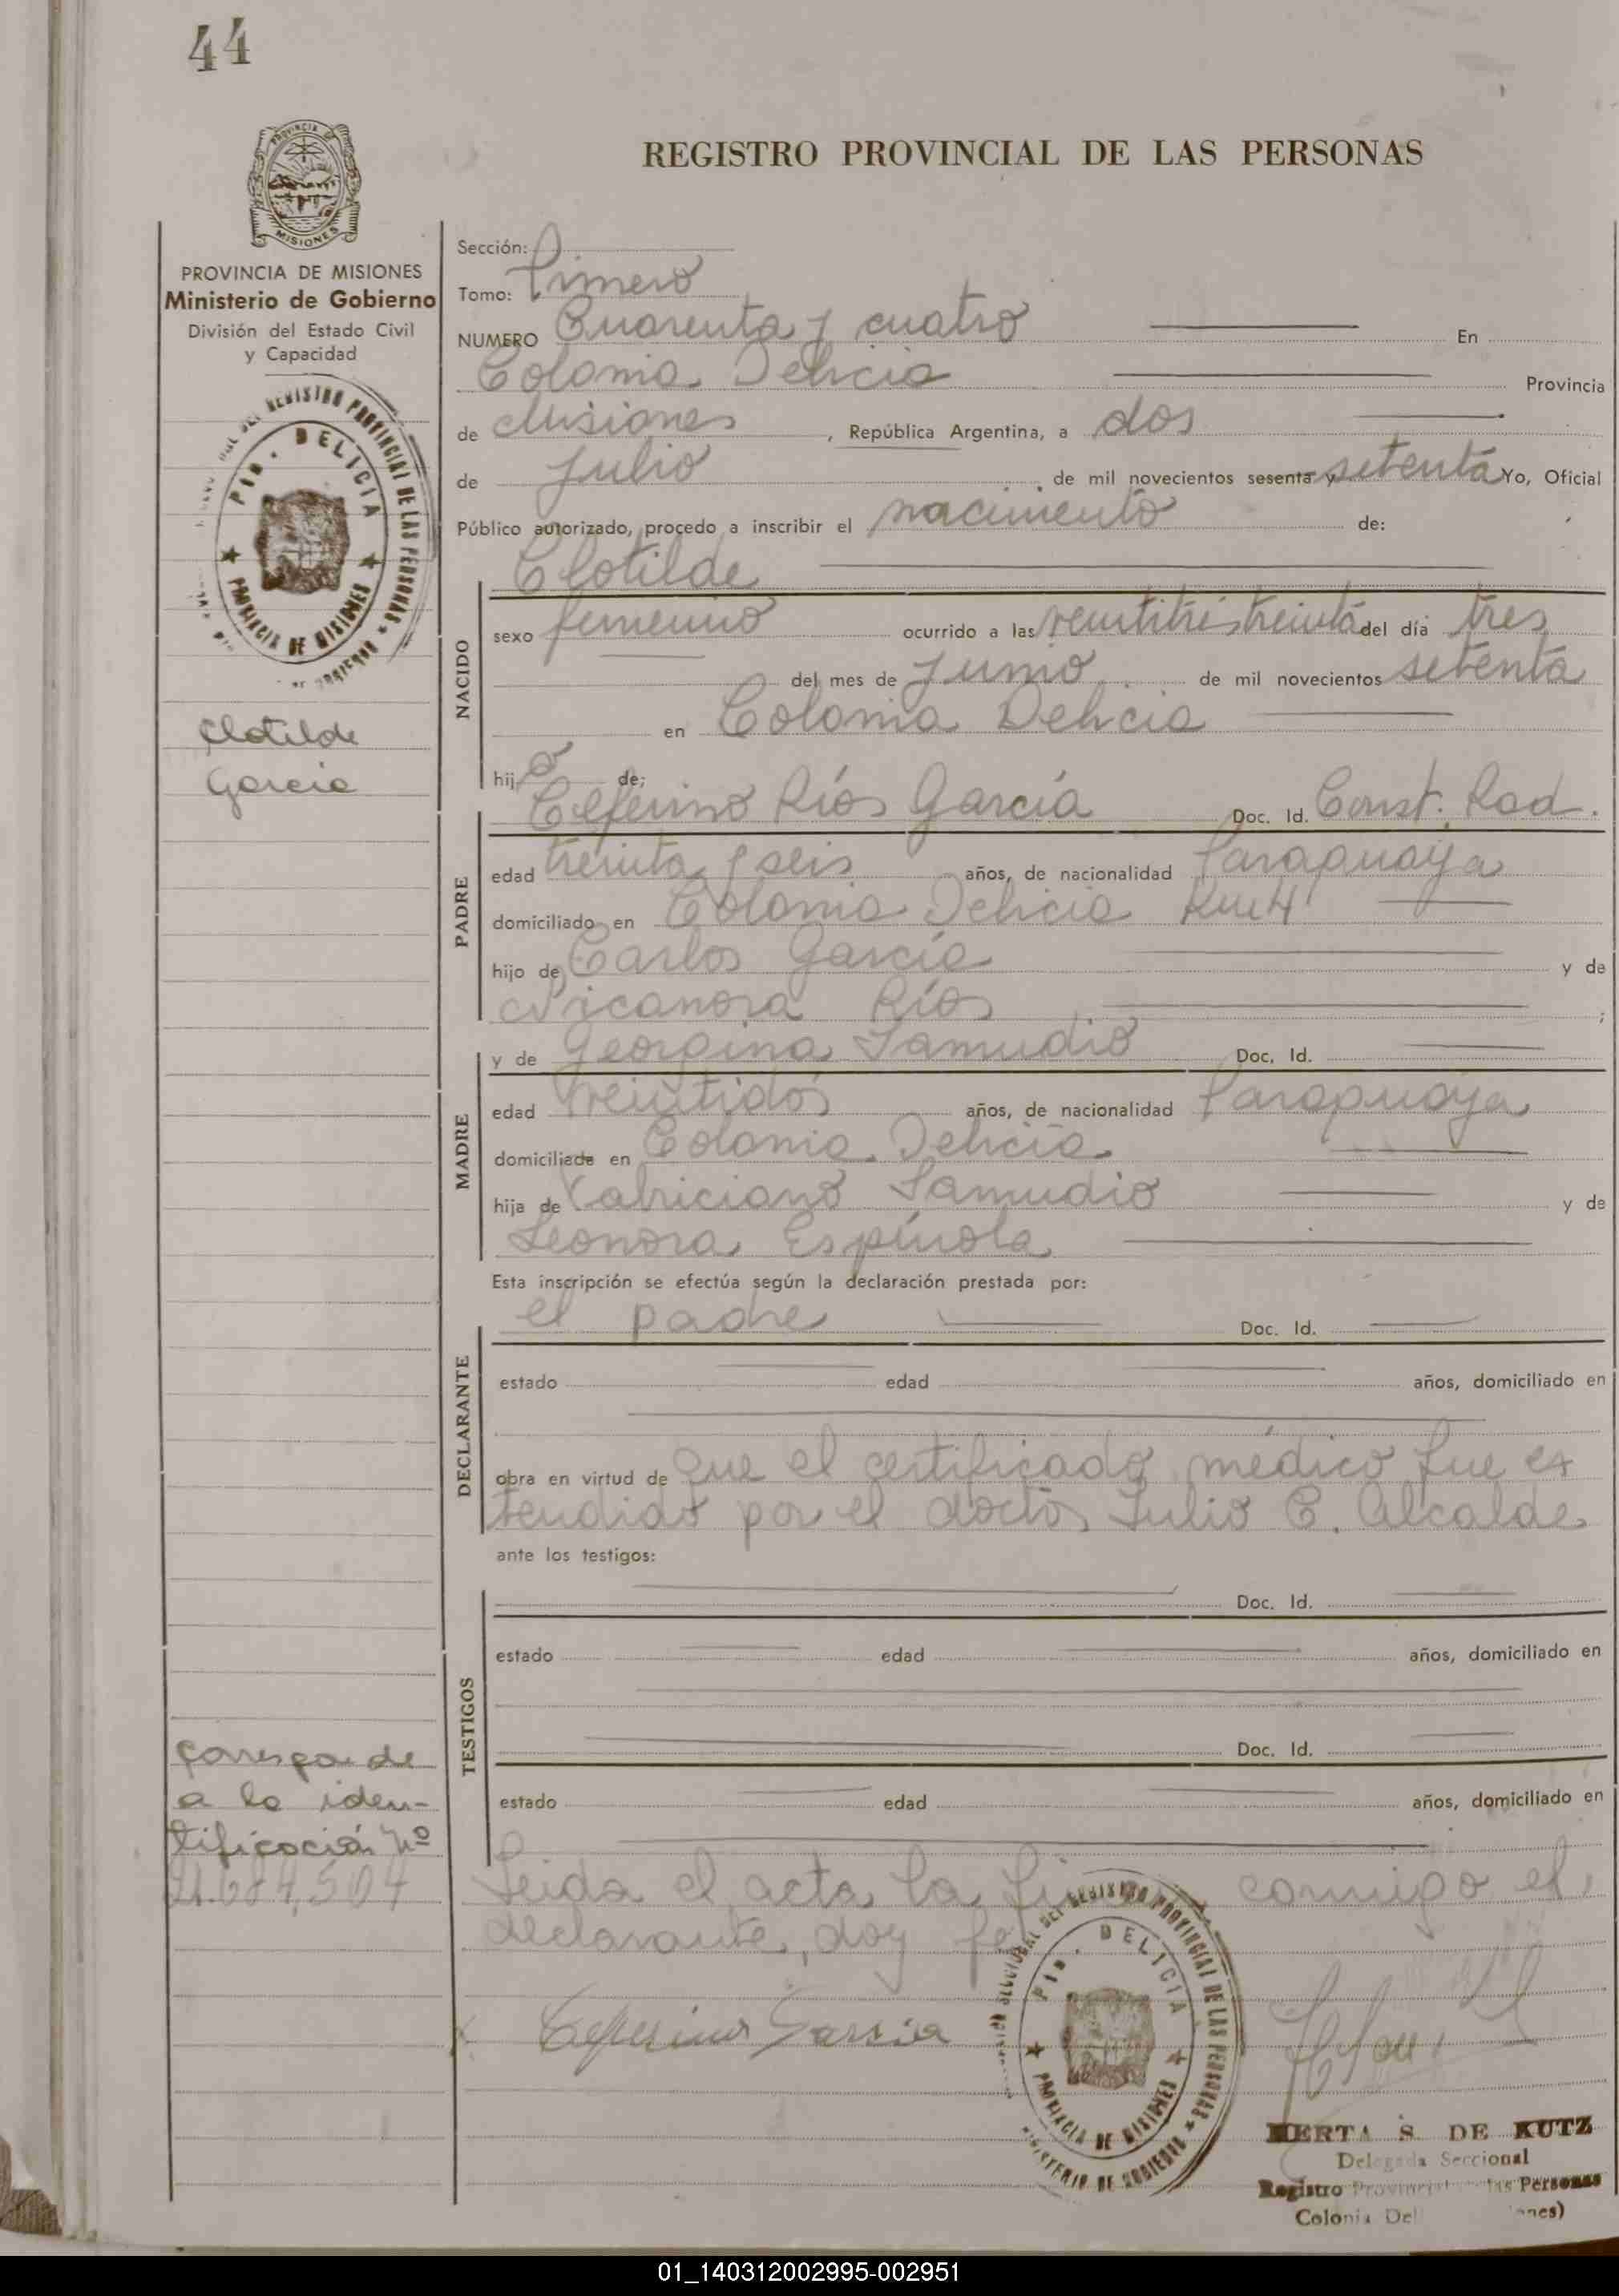 44
PROVINCIA DE
MISIONES
PROVINCIA DE MISIONES
Ministerio de Gobierno
División del Estado Civil
y Capacidad
REGISTRO PROVINCIAL DE LAS PERSONAS
PCIA. DELICIA
PROVINCIA DE MISIONES
Clotilde
García
Corresponde
a la iden-
tificación Nº
21.684.504
REGISTRO PROVINCIAL DE LAS PERSONAS
Sección:
Tomo: Primero
NUMERO Cuarenta y cuatro En
Colonia Delicia Provincia
de Misiones, República Argentina, a dos
de Julio de mil novecientos sesenta y setenta Yo, Oficial
Público autorizado, procedo a inscribir el nacimiento de:
Clotilde
NACIDO
sexo femenino ocurrido a las veintitrés treinta del día tres
del mes de Junio de mil novecientos setenta
en Colonia Delicia
hija de:
Ceferino Ríos García Doc. Id. Const. Rad.
PADRE
edad treinta y seis años, de nacionalidad Paraguaya
domiciliado en Colonia Delicia Km 4
hijo de Carlos García y de
Nicanora Ríos ;
y de Georgina Samudio Doc. Id.
MADRE
edad veintidós años, de nacionalidad Paraguaya
domiciliada en Colonia Delicia
hija de Samudio y de
Leonora Espínola
Esta inscripción se efectúa según la declaración prestada por:
el padre Doc. Id.
DECLARANTE
estado edad años, domiciliado en
obra en virtud de que el certificado médico fue ex
tendido por el doctor Julio C. Alcalde
ante los testigos:
Doc. Id.
TESTIGOS
estado edad años, domiciliado en
Doc. Id.
estado edad años, domiciliado en
Leida el acta la conmigo el
declarante, doy fe
Ceferino Garsia
PCIA. DELICIA
PROVINCIA DE MISIONES
REGISTRO PROVINCIAL DE LAS PERSONAS
MINISTERIO DE GOBIERNO
HERTA S. DE KUTZ
Delegada Seccional
Registro Provincial las Personas
Colonia Del
01_140312002995-002951